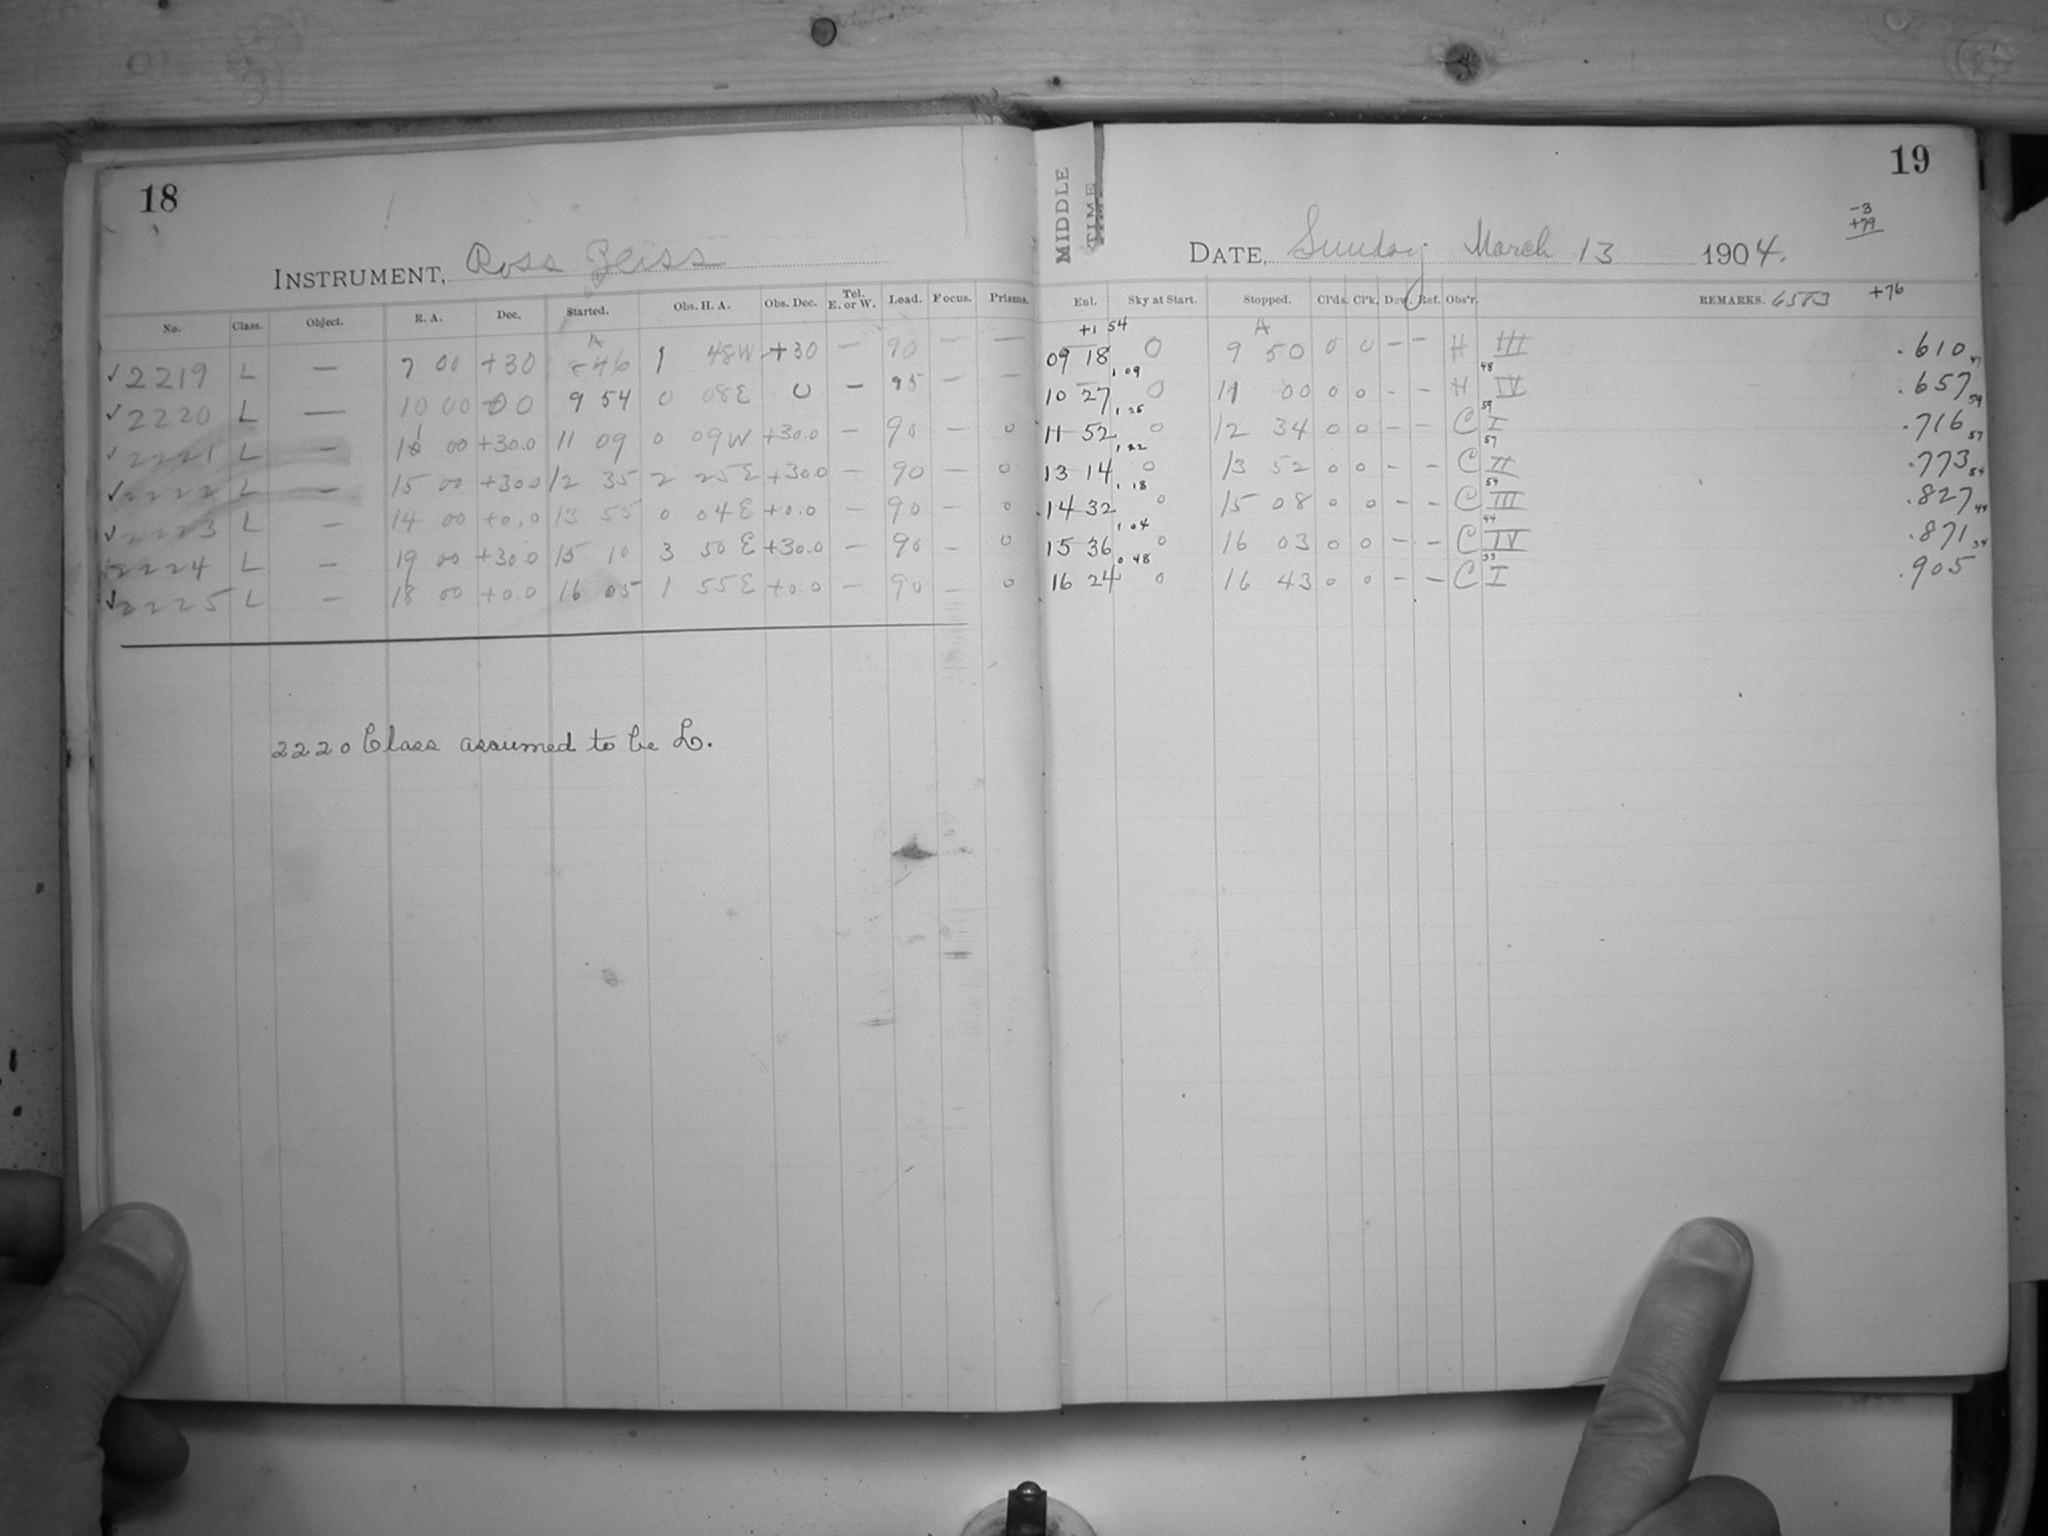 18
INSTRUMENT, Ross Zeiss
No. Class. Object. R. A. Dec. Started. Obs. H. A. Obs. Dec. Tel. E. or W. Load. Focus. Prisms.
A
✓2219 L — 7 00 +30 46 1 48W +30 — 90 — —
✓2220 L — 10 00 00 9 54 0 08E 0 — 95 — —
✓2221 L — 11 00 +30.0 11 09 0 09W +30.0 — 90 — 0
✓2222 L — 15 00 +30.0 12 35 2 25E +30.0 — 90 — 0
✓2223 L — 14 00 +0.0 13 55 0 04E +0.0 — 90 — 0
✓2224 L — 19 00 +30.0 15 10 3 50E +30.0 — 90 — 0
✓2225 L — 18 00 +0.0 16 05 1 55E +0.0 — 90 — 0
2220 Class assumed to be L.
MIDDLE
TIME
19
-3
+79
DATE, Sunday March 13 1904.
Enl. Sky at Start. Stopped. Cl'ds. Cl'k. Dew. Ref. Obs'r. REMARKS. 6583 +76
+1 54 A
09 18 0 9 50 0 0 — — H III .610 47
1 09 48
10 27 0 11 00 0 0 - - H IV .657 59
1 25 59
11 52 0 12 34 0 0 - - C I .716 57
1 22 57
13 14 0 13 52 0 0 - - C II .773 54
1 18 54
14 32 0 15 08 0 0 - - C III .827 44
1 04 44
15 36 0 16 03 0 0 - - C IV .871 34
0 48 33
16 24 0 16 43 0 0 - - C I .905